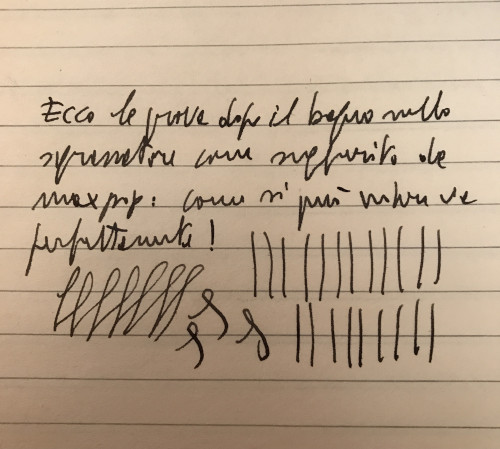 Ecco le prove dopo il bagno nello
sgrassatore come suggerito da
maxpop: come si può notare va
perfettamente!